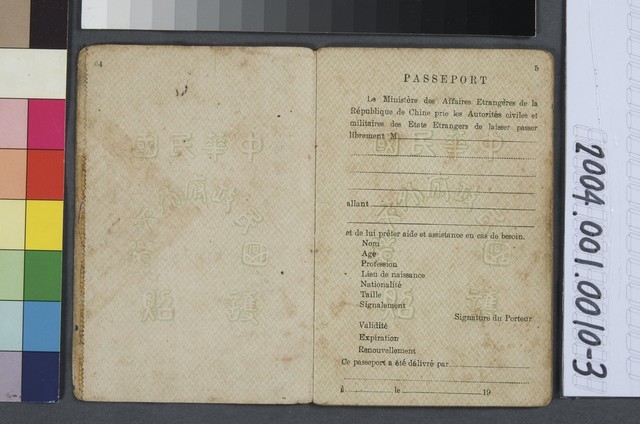 4
中華民國
護
照
5
PASSEPORT
Le Ministère des Affaires Etrangères de la
République de Chine prie les Autorités civiles et
militaires des Etats Etrangers de laisser passer
librement M
中華民國
allant
et de lui prêter aide et assistance en cas de besoin.
Nom
Age
Profession
Lieu de naissance
Nationalité
Taille
Signalement
護
照
Signature du Porteur
Validité
Expiration
Renouvellement
Ce passeport a été délivré par
à le 19
2004.001.0010-3